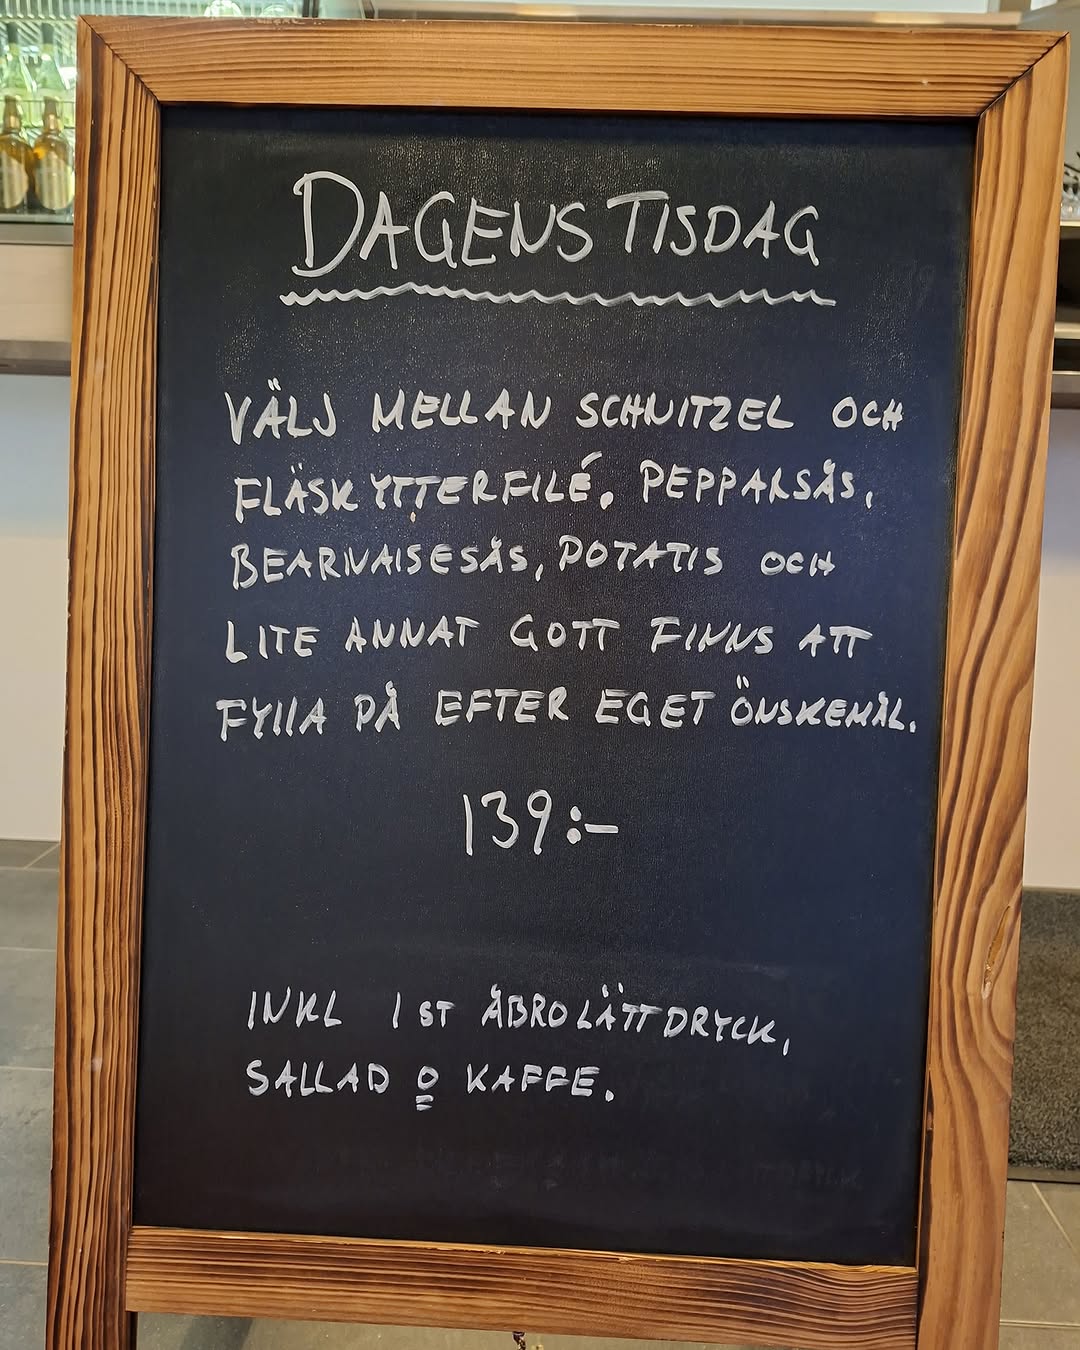 DAGENS TISDAG
VÄLJ MELLAN SCHNITZEL OCH
FLÄSKYTTERFILÉ. PEPPARSÅS,
BEARNAISESÅS, POTATIS OCH
LITE ANNAT GOTT FINNS ATT
FYLLA PÅ EFTER EGET ÖNSKEMÅL.
139:-
INKL 1 ST ÅBRO LÄTTDRYCK,
SALLAD O KAFFE.